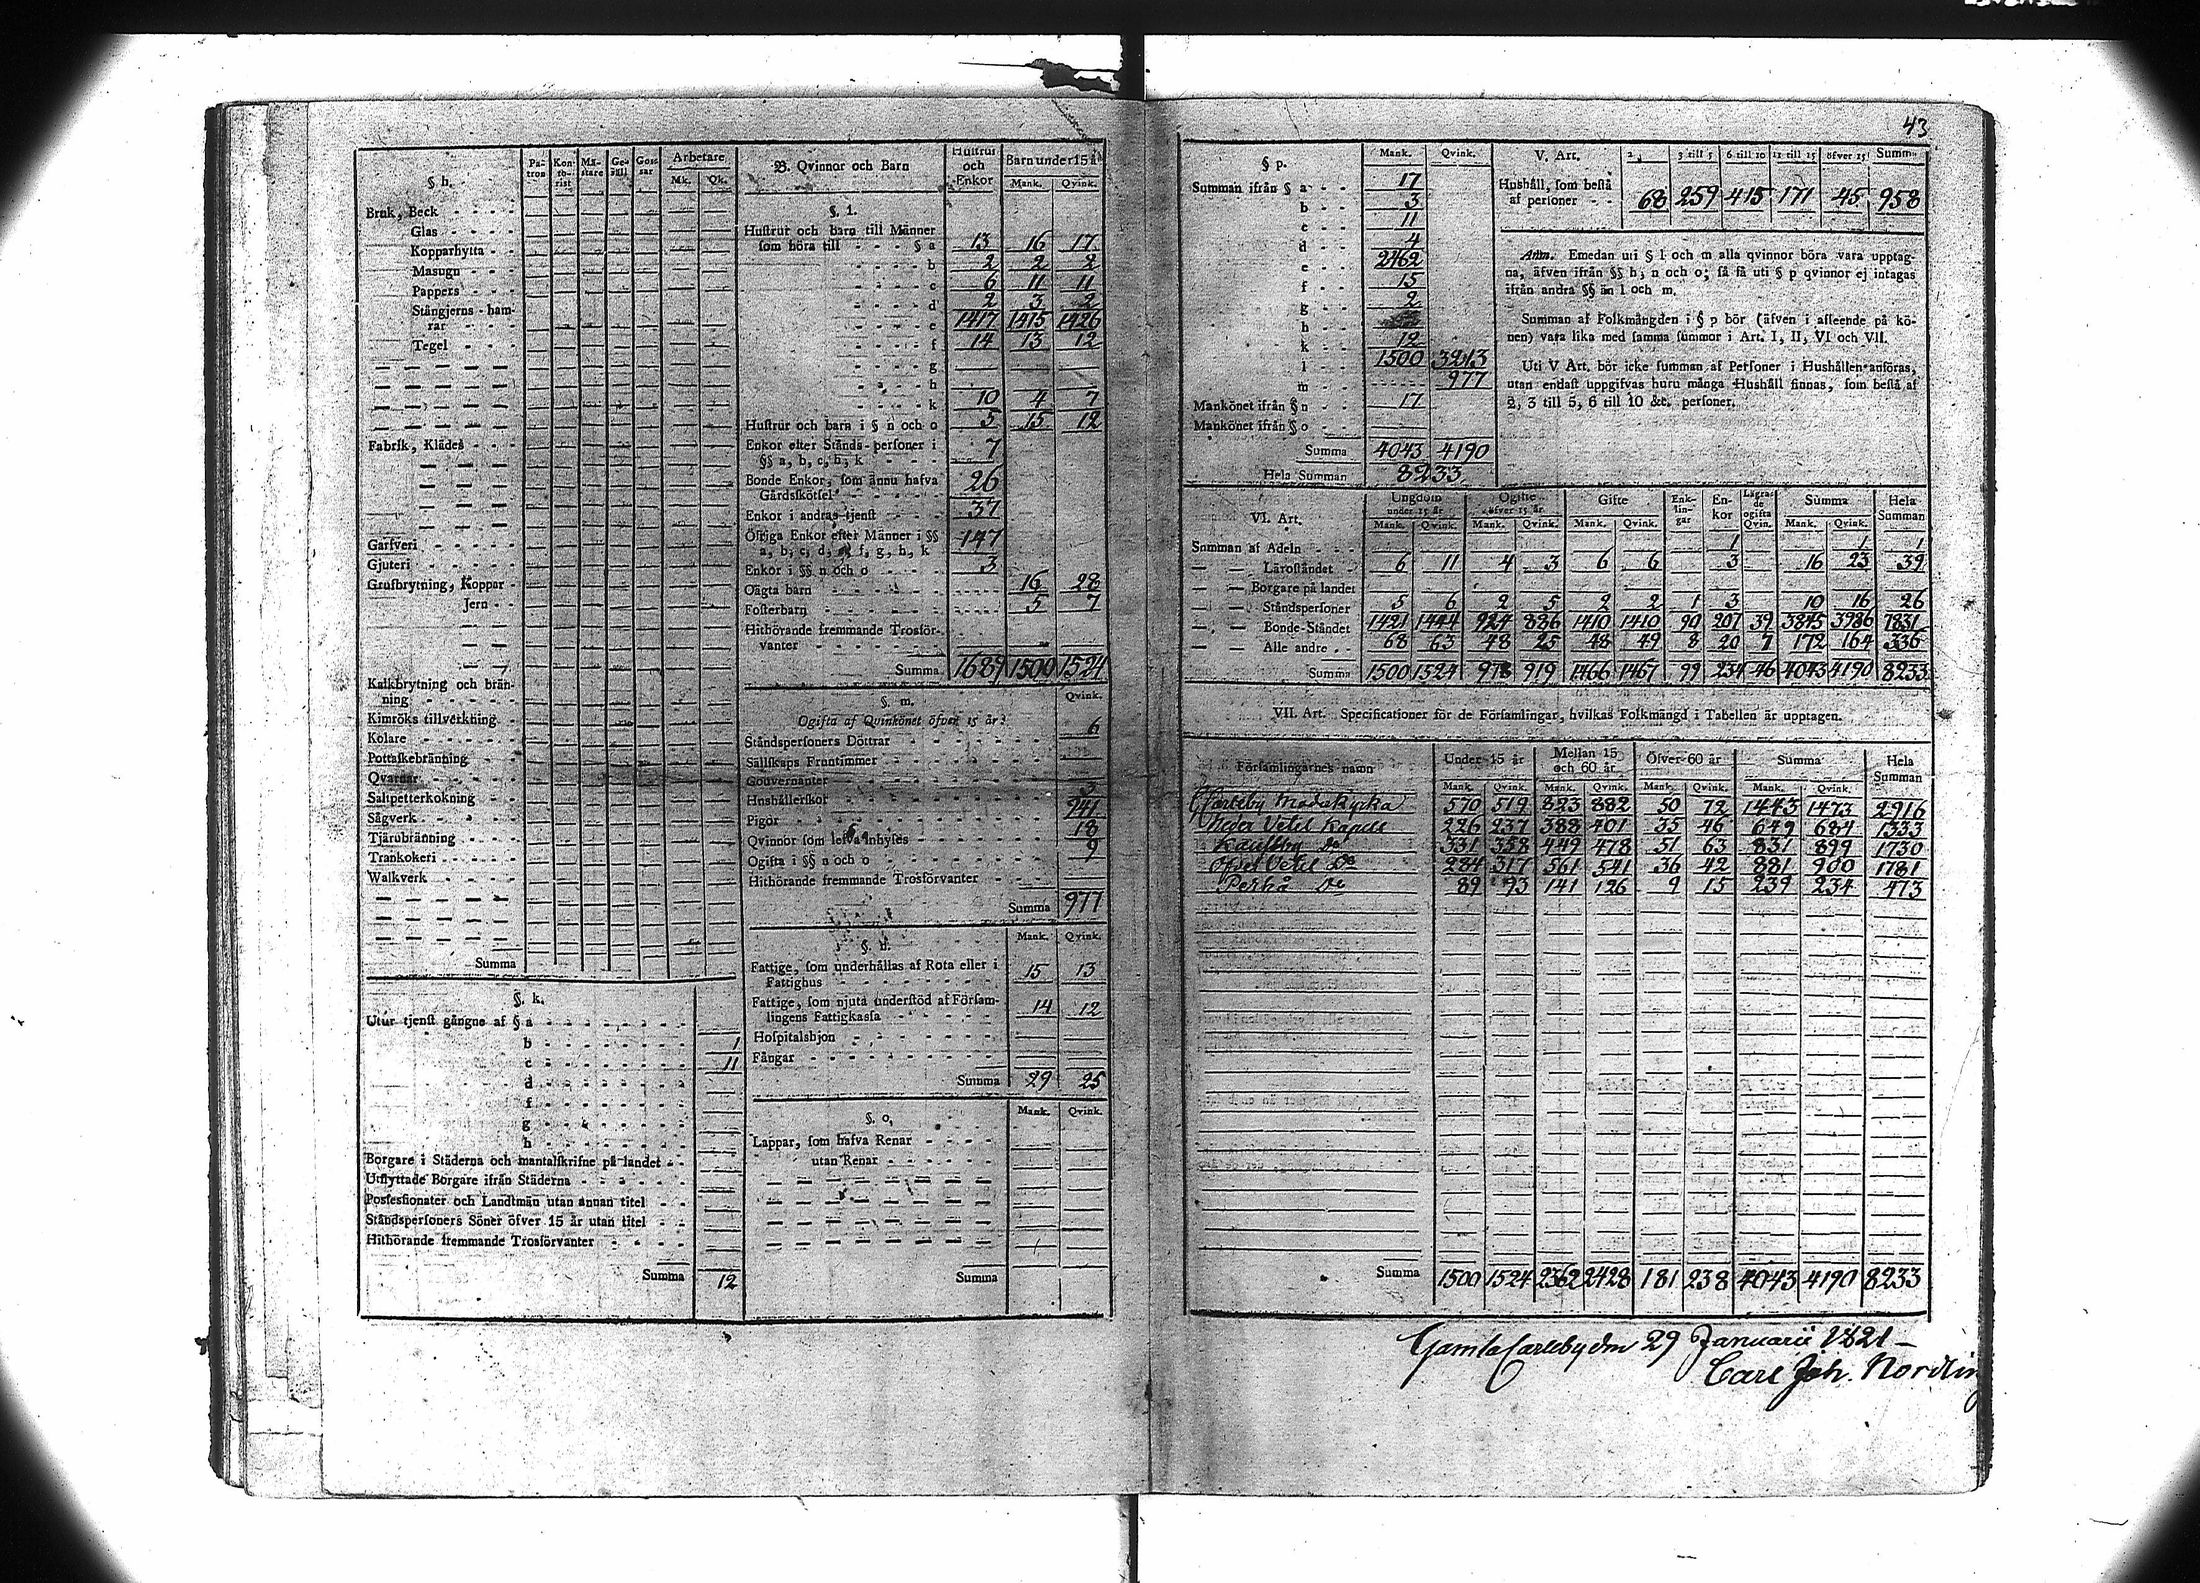 43
§ h.
Pa- tron
Kon- to- rist
Mä- stare
Ge- säll
Gos- sar
Arbetare
Mk. Qk.
Bruk, Beck
Glas
Kopparhytta
Masugn
Pappers
Stångjerns-ham-
rar
Tegel
Fabrik, Klädes
Garfveri
Gjuteri
Grufbrytning, Koppar
Jern
Kalkbrytning och brän-
ning
Kimröks tillverkning
Kolare
Pottaskebränning
Qvarnar
Saltpetterkokning
Sågverk
Tjärubränning
Trankokeri
Walkverk
Summa
§. k.
Utur tjenst gångne af § a
b 1
c 11
d
f
g
h
Borgare i Städerna och mantalskrifne på landet
Utflyttade Borgare ifrån Städerna
Possessionater och Landtmän utan annan titel
Ståndspersoners Söner öfver 15 år utan titel
Hithörande fremmande Trosförvanter
Summa 12
B. Qvinnor och Barn
Hustrur och Enkor
Barn under 15 år
Mank. Qvink.
§. l.
Hustrur och barn till Männer
som höra till § a 13 16 17
b 2 2 2
c 6 11 11
d 2 3 2
e 1417 1415 1426
f 14 13 12
g
h
k 10 4 7
Hustrur och barn i § n och o 5 15 12
Enkor efter Stånds-personer i
§§ a, b, c, h, k 7
Bonde Enkor, som ännu hafva
Gårdsskötsel 26
Enkor i andras tjenst 37
Öfriga Enkor efter Männer i §§
a, b, c, d, e, f, g, h, k 147
Enkor i §§ n och o 3
Oägta barn 16 28
Fosterbarn 5 7
Hithörande fremmande Trosför-
vanter
Summa 1689 1500 1524
§. m. Qvink.
Ogifta af Qvinkönet öfver 15 år:
Ståndspersoners Döttrar 6
Sällskaps Fruntimmer
Gouvernanter
Hushållerskor 3
Pigor 941
Qvinnor som lefva inhyses 18
Ogifta i §§ n och o 9
Hithörande fremmande Trosförvanter
Summa 977
§. n. Mank. Qvink.
Fattige, som underhållas af Rota eller i
Fattighus 15 13
Fattige, som njuta understöd af Försam-
lingens Fattigkassa 14 12
Hospitalshjon
Fångar
Summa 29 25
§. o. Mank. Qvink.
Lappar, som hafva Renar
utan Renar
Summa
§ p. Mank. Qvink.
Summan ifrån § a 17
b 3
c 11
d 4
e 2462
f 15
g 2
h
k 12
l 1500 3213
m 977
Mankönet ifrån § n 17
Mankönet ifrån § o
Summa 4043 4190
Hela Summan 8233
V. Art. 2, 3 till 5 6 till 10 11 till 15 öfver 15 Summa
Hushåll, som bestå
af personer 68 259 415 171 45 958
Anm. Emedan uti § l och m alla qvinnor böra vara upptag-
na, äfven ifrån §§ h, n och o; så få uti § p qvinnor ej intagas
ifrån andra §§ än l och m.
Summan af Folkmängden i § p bör (äfven i afseende på kö-
nen) vara lika med samma summor i Art. I, II, VI och VII.
Uti V Art. bör icke summan af Personer i Hushållen anföras,
utan endast uppgifvas huru många Hushåll finnas, som bestå af
2, 3 till 5, 6 till 10 &c. personer.
VI. Art.
Ungdom under 15 år
Ogifte öfver 15 år
Gifte
Enk- lin- gar
En- kor
Lägra- de ogifta Qvin.
Summa
Hela Summan
Mank. Qvink. Mank. Qvink. Mank. Qvink. Mank. Qvink.
Summan af Adeln 1 1 1
Läroståndet 6 11 4 3 6 6 3 16 23 39
Borgare på landet
Ståndspersoner 5 6 2 5 2 2 1 3 10 16 26
Bonde-Ståndet 1421 1444 924 886 1410 1410 90 207 39 3845 3986 7831
Alle andre 68 63 48 25 48 49 8 20 7 172 164 336
Summa 1500 1524 978 919 1466 1467 99 234 46 4043 4190 8233
VII. Art. Specificationer för de Församlingar, hvilkas Folkmängd i Tabellen är upptagen.
Församlingarnes namn
Under 15 år
Mellan 15 och 60 år
Öfver 60 år
Summa
Hela Summan
Mank. Qvink. Mank. Qvink. Mank. Qvink. Mank. Qvink.
Carleby Moderkyrka 570 519 823 882 50 72 1443 1473 2916
Neder Vetil Kapell 226 237 388 401 35 46 649 684 1333
Kaustby Do 331 358 449 478 51 63 831 899 1730
Öfver Vetil Do 284 317 561 541 36 42 881 900 1781
Perho Do 89 93 141 126 9 15 239 234 473
Summa 1500 1524 2362 2428 181 238 4043 4190 8233
GamlaCarleby den 29 Januarii 1821
Carl Joh. Nordling